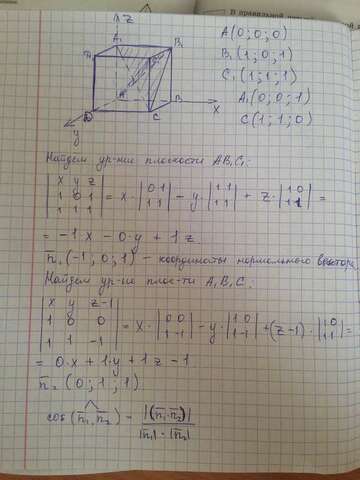 В правильной
A(0;0;0)
B₁(1;0;1)
C₁(1;1;1)
A₁(0;0;1)
C(1;1;0)
z
A₁
B₁
D₁
A
B
x
D
C
y
Найдем ур-ние плоскости AB₁C₁:
|x y z; 1 0 1; 1 1 1| = x·|0 1; 1 1| − y·|1 1; 1 1| + z·|1 0; 1 1| =
= −1·x − 0·y + 1z.
n̄₁(−1; 0; 1) – координаты нормального вектора.
Найдем ур-ие плос-ти A₁B₁C:
|x y z−1; 1 0 0; 1 1 −1| = x·|0 0; 1 −1| − y·|1 0; 1 −1| + (z−1)·|1 0; 1 1| =
= 0·x + 1·y + 1z − 1
n̄₂(0; 1; 1).
cos(n̄₁,n̄₂) = |(n̄₁·n̄₂)| / |n̄₁|·|n̄₂|